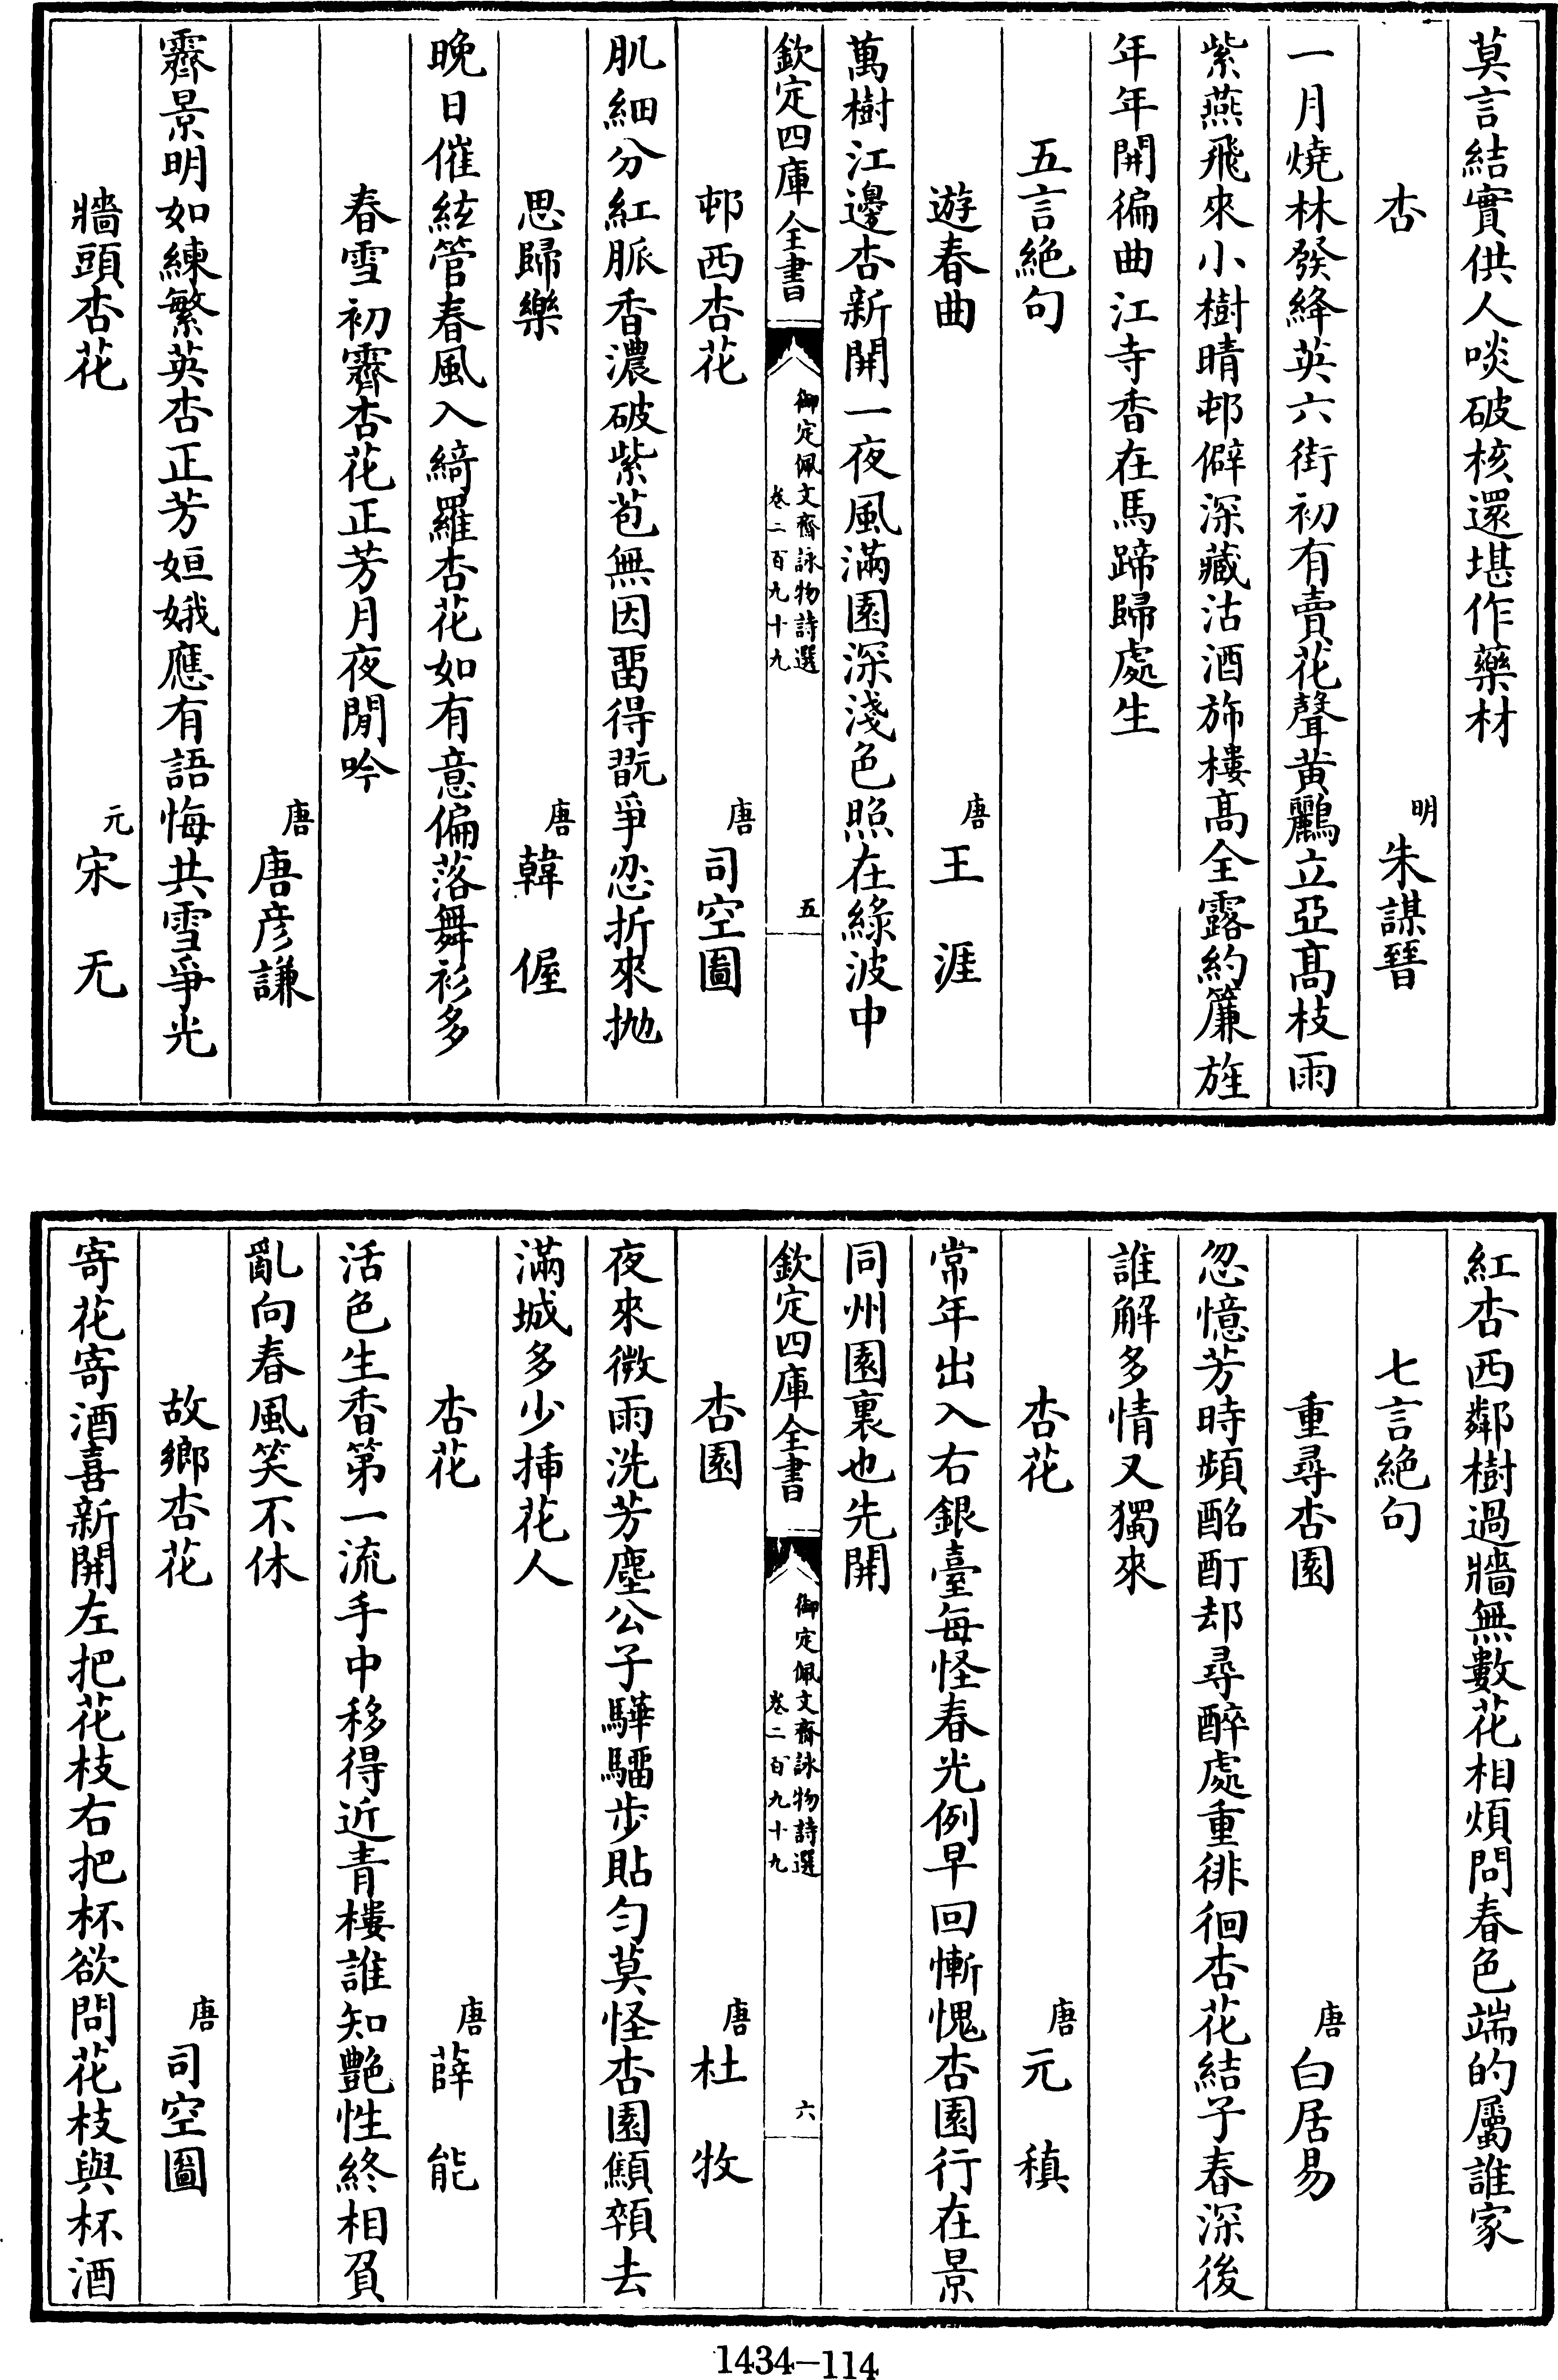 莫言結實供人啖破核還堪作藥材
杏
明朱謀㙔
一月燒林發絳英六街初有賣花聲黃鸝立亞髙枝雨
紫燕飛來小樹晴邨僻深藏沽酒斾樓髙全露約簾旌
年年開徧曲江寺香在馬蹄歸處生
五言絶句
遊春曲
唐王涯
萬樹江邊杏新開一夜風滿園深淺色照在綠波中
欽定四庫全書
御定佩文齋詠物詩選
卷二百九十九
五
邨西杏花
唐司空圖
肌細分紅脈香濃破紫苞無因留得翫爭忍折來拋
思歸樂
唐韓偓
晚日催絃管春風入綺羅杏花如有意偏落舞衫多
春雪初霽杏花正芳月夜閒吟
唐唐彦謙
霽景明如練繁英杏正芳姮娥應有語悔共雪爭光
牆頭杏花
元宋无
紅杏西鄰樹過牆無數花相煩問春色端的屬誰家
七言絶句
重尋杏園
唐白居易
忽憶芳時頻酩酊却尋醉處重徘徊杏花結子春深後
誰解多情又獨來
杏花
唐元稹
常年出入右銀臺每怪春光例早回慚愧杏園行在景
同州園裏也先開
欽定四庫全書
御定佩文齋詠物詩選
卷二百九十九
六
杏園
唐杜牧
夜來微雨洗芳塵公子驊騮步貼勻莫怪杏園顦顇去
滿城多少揷花人
杏花
唐薛能
活色生香第一流手中移得近青樓誰知艷性終相負
亂向春風笑不休
故鄉杏花
唐司空圖
寄花寄酒喜新開左把花枝右把杯欲問花枝與杯酒
1434-114